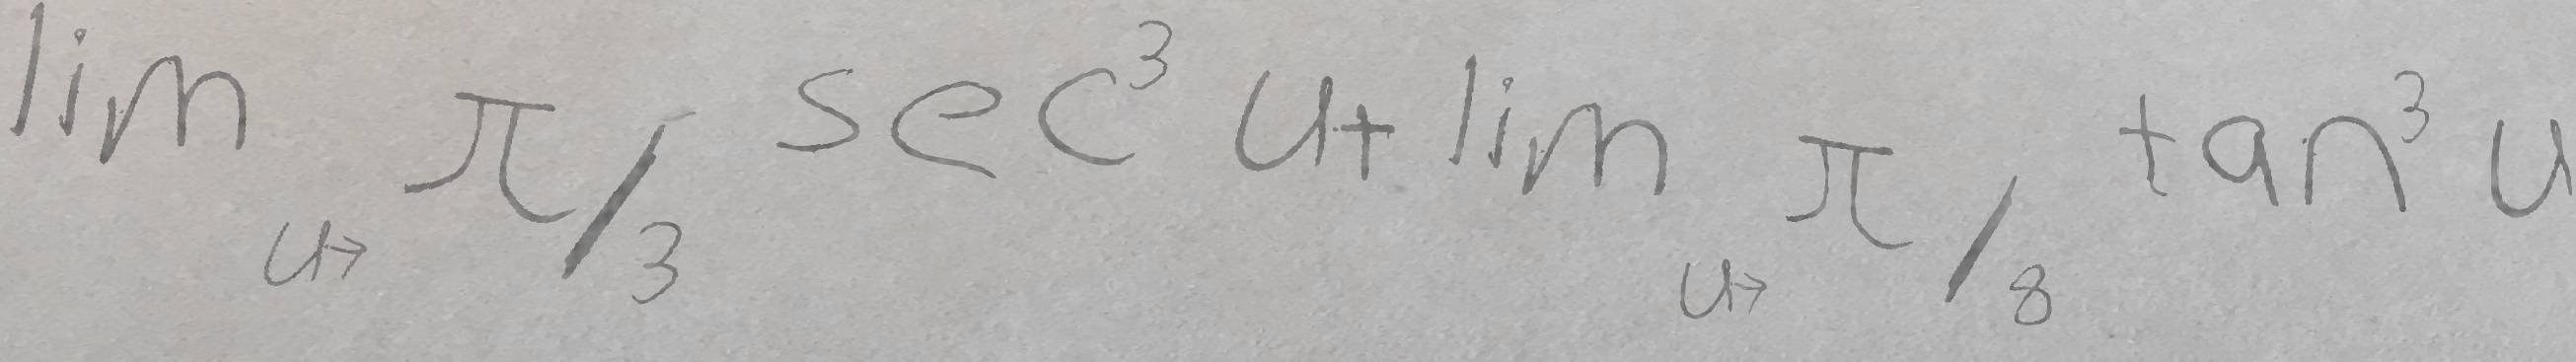 lim u→ π/3 sec³ u + lim u→ π/8 tan³ u